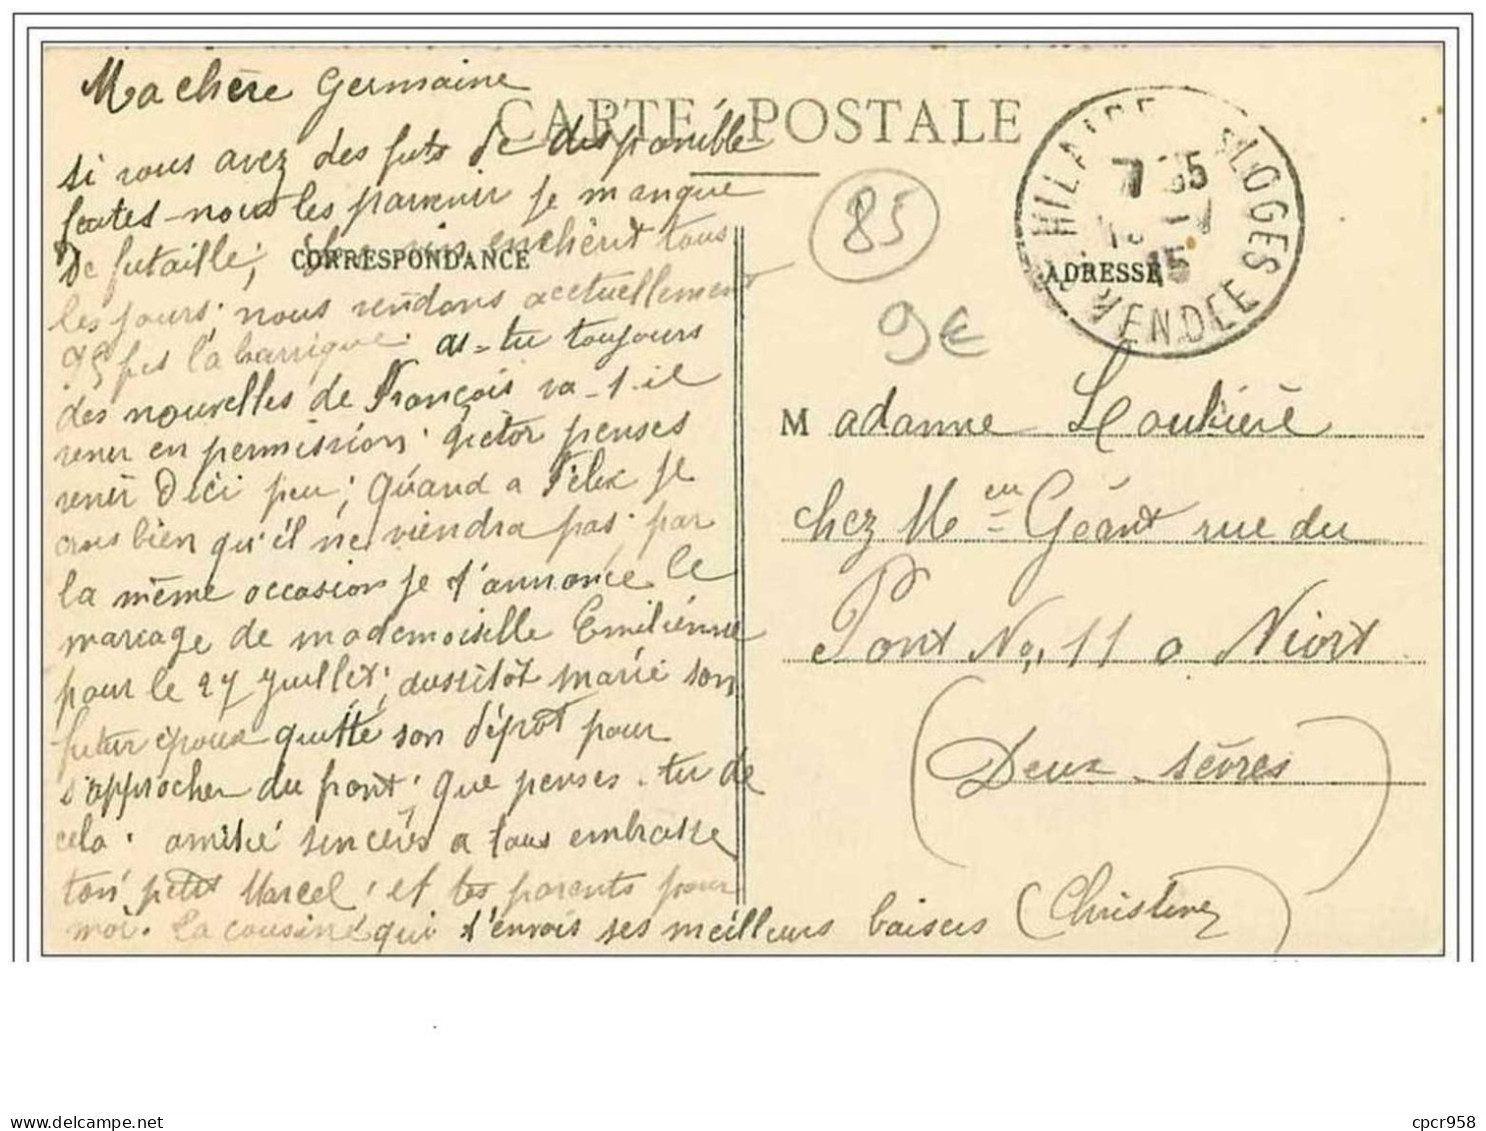 Ma chère Germaine
CARTE POSTALE
si vous avez des futs de disponible
faites-nous les parvenir je manque
De futaille; vin enchérit tous
CORRESPONDANCE
les jours. nous vendons acctuellement
95 frs la barrique. as-tu toujours
des nouvelles de François va-t-il
venir en permission. Victor penses
venir D'ici peu; Quand a Félix je
crois bien qu'il ne viendra pas. par
la même occasion je t'annonce le
mariage de mademoiselle Emiliénne
pour le 27 Juillet; aussitôt marié son
futur époux quitte son dépôt pour
s'approcher du front; que penses-tu de
cela. amitié sincères a tous embrasse
ton petit Marcel, et tes parents pour
moi. La cousine qui t'envois ses meilleurs baisers (Christine)
85
9€
HILAIRE LOGES
7 35
15
VENDEE
ADRESSE
Madamme
chez Mr Géant rue du
Pont No 11 a Niort
(Deux-sèvres)
cpcr958